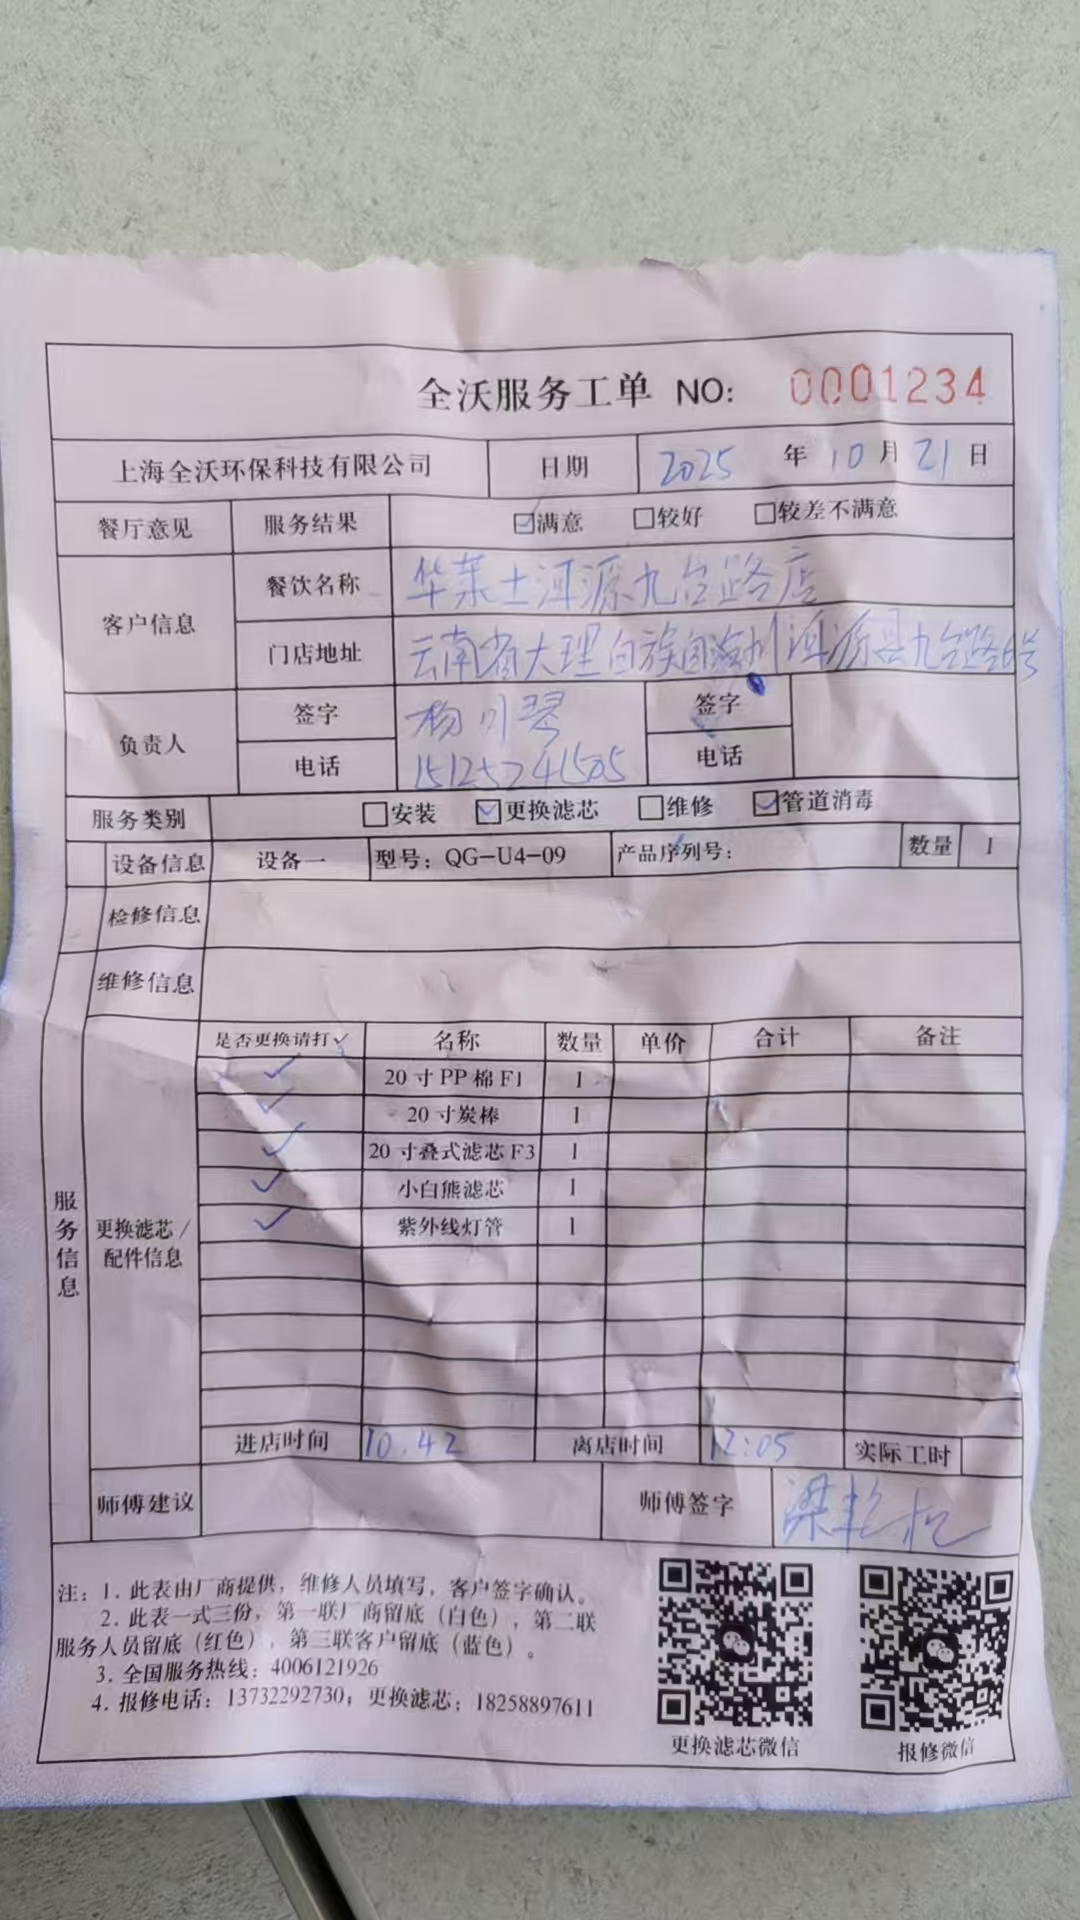 全沃服务工单 NO: 0001234
上海全沃环保科技有限公司 日期 2025 年 10 月 21 日
餐厅意见 服务结果 ☑满意 □较好 □较差不满意
客户信息 餐饮名称 华莱士洱源九台路店
门店地址 云南省大理白族自治州洱源县九台路6号
负责人 签字 杨川琴 签字
电话 15125241505 电话
服务类别 □安装 ☑更换滤芯 □维修 ☑管道消毒
设备信息 设备一 型号：QG-U4-09 产品序列号： 数量 1
检修信息
维修信息
服务信息
更换滤芯/配件信息
是否更换请打✓ 名称 数量 单价 合计 备注
✓ 20寸PP棉F1 1
✓ 20寸炭棒 1
✓ 20寸叠式滤芯F3 1
✓ 小白熊滤芯 1
✓ 紫外线灯管 1
进店时间 10.42 离店时间 12:05 实际工时
师傅建议 师傅签字 梁乾松
注：1. 此表由厂商提供，维修人员填写，客户签字确认。
2. 此表一式三份，第一联厂商留底（白色），第二联
服务人员留底（红色），第三联客户留底（蓝色）。
3. 全国服务热线：4006121926
4. 报修电话：13732292730；更换滤芯：18258897611
更换滤芯微信 报修微信